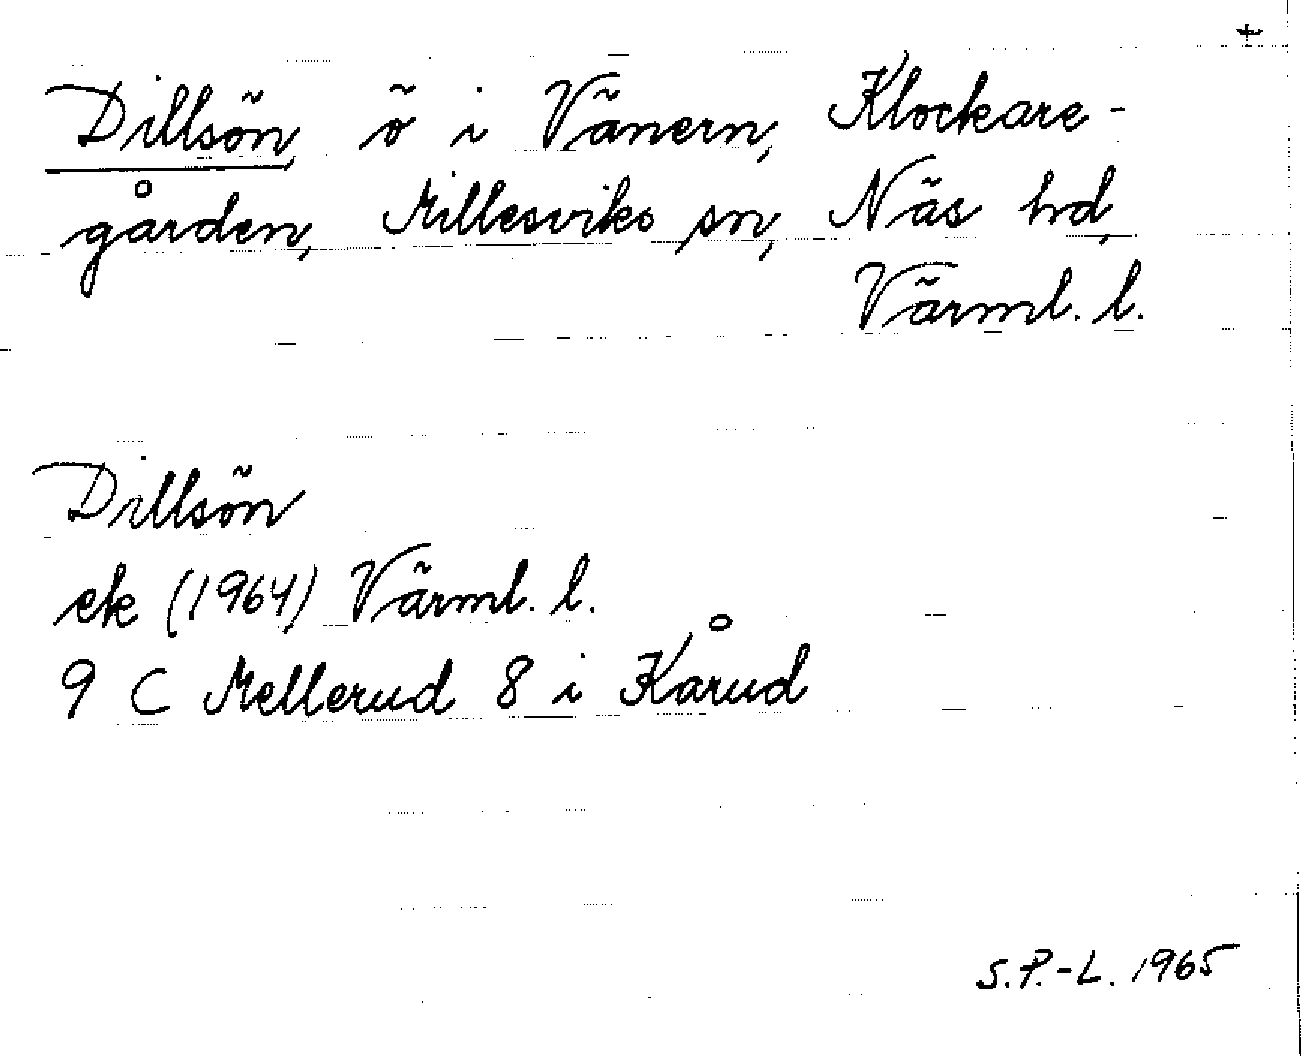 +
Dillsön, ö i Vänern, Klockare-
gården, Millesviks sn, Näs hd,
Värml. l.
Dillsön
ek (1964) Värml. l.
9 C Mellerud 8 i Kårud
S.P.-L. 1965